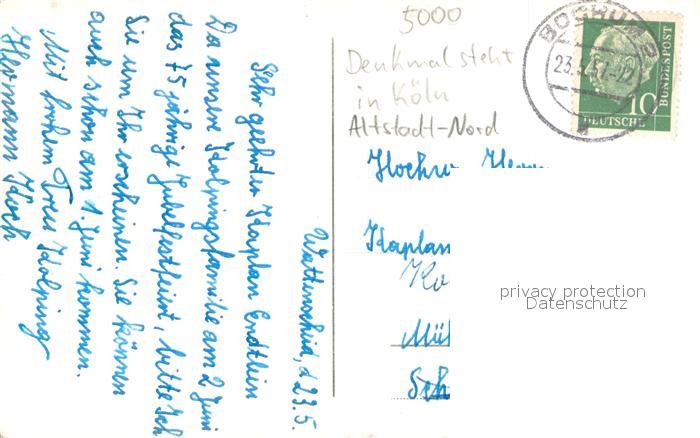 Wattenscheid, d 23.5.
Sehr geehrter Kaplan Endtlein
Da unsere Kolpingsfamilie am 2 Juni
das 75 jährige Jubelfest feiert, bitte ich
Sie um Ihr erscheinen. Sie können
auch schon am 1. Juni kommen.
Mit frohem Treu Kolping
Hermann Koch
5000
Denkmal steht
in Köln
Altstadt-Nord
BOCHUM 2
23.5.57-12
10
DEUTSCHE
BUNDESPOST
Hochw
Kaplan
Ko
Mül
Sch
privacy protection
Datenschutz